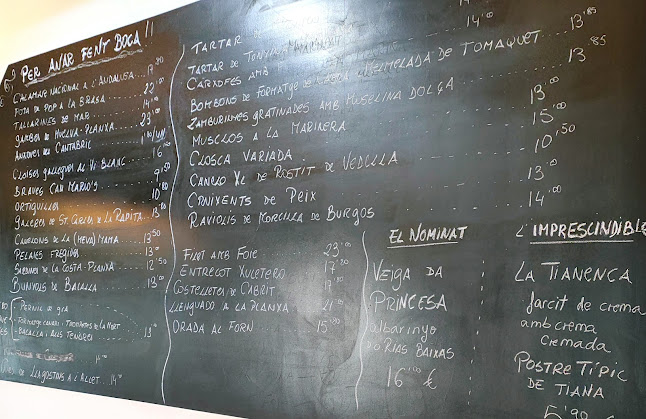 PER ANAR FENT BOCA!!
CALAMARS NACIONAL A L'ANDALUSA 17'80
POTA DE POP A LA BRASA 22'00
TALLARINES DE MAR 14'00
GAMBES DE HUELVA-PLANXA 23'00
ANXOVES DEL CANTABRIC 1'80/UN
CLOÏSES GALLEGUES AL VI BLANC 16'00
BRAVES CAN MARIO'S 9'50
ORTIGUILLES 10'80
GALERES DE ST. CARLES DE LA RAPITA 13'80
CANELONS DE LA (MEVA) MAMA 13'50
PELAIES FREGIDES 13'00
SARDINES DE LA COSTA-PLANXA 12'50
BUNYOLS DE BACALLÀ 13'00
- PERNIL DE GLA
- BACALLÀ I ALLS TENDRES 13'00
LLAGOSTINS A L'ALLET 14'00
TARTAR DE
TARTAR DE 14'00
CARXOFES AMB
BOMBONS DE FORMATGE DE MELMELADA DE TOMAQUET 13'85
ZAMBURINHES GRATINADES AMB MUSELINA DOLÇA 13'85
MUSCLOS A LA MARINERA 13'00
CLOSCA VARIADA 15'00
CANELO XL DE ROSTIT DE VEDELLA 10'50
CRUIXENTS DE PEIX 13'00
RAVIOLIS DE MORCILLA DE BURGOS 14'00
FILET AMB FOIE 23'00
ENTRECOT XULETERO 17'20
COSTELLETES DE CABRIT
LLENGUADO A LA PLANXA 21'00
ORADA AL FORN 15'80
EL NOMINAT
VEIGA DA
PRINCESA
albarinyo
D.O. RIAS BAIXAS
16'00 €
L'IMPRESCINDIBLE
LA TIANENCA
farcit de crema
amb crema
cremada
POSTRE TÍPIC
DE TIANA
5'90 €